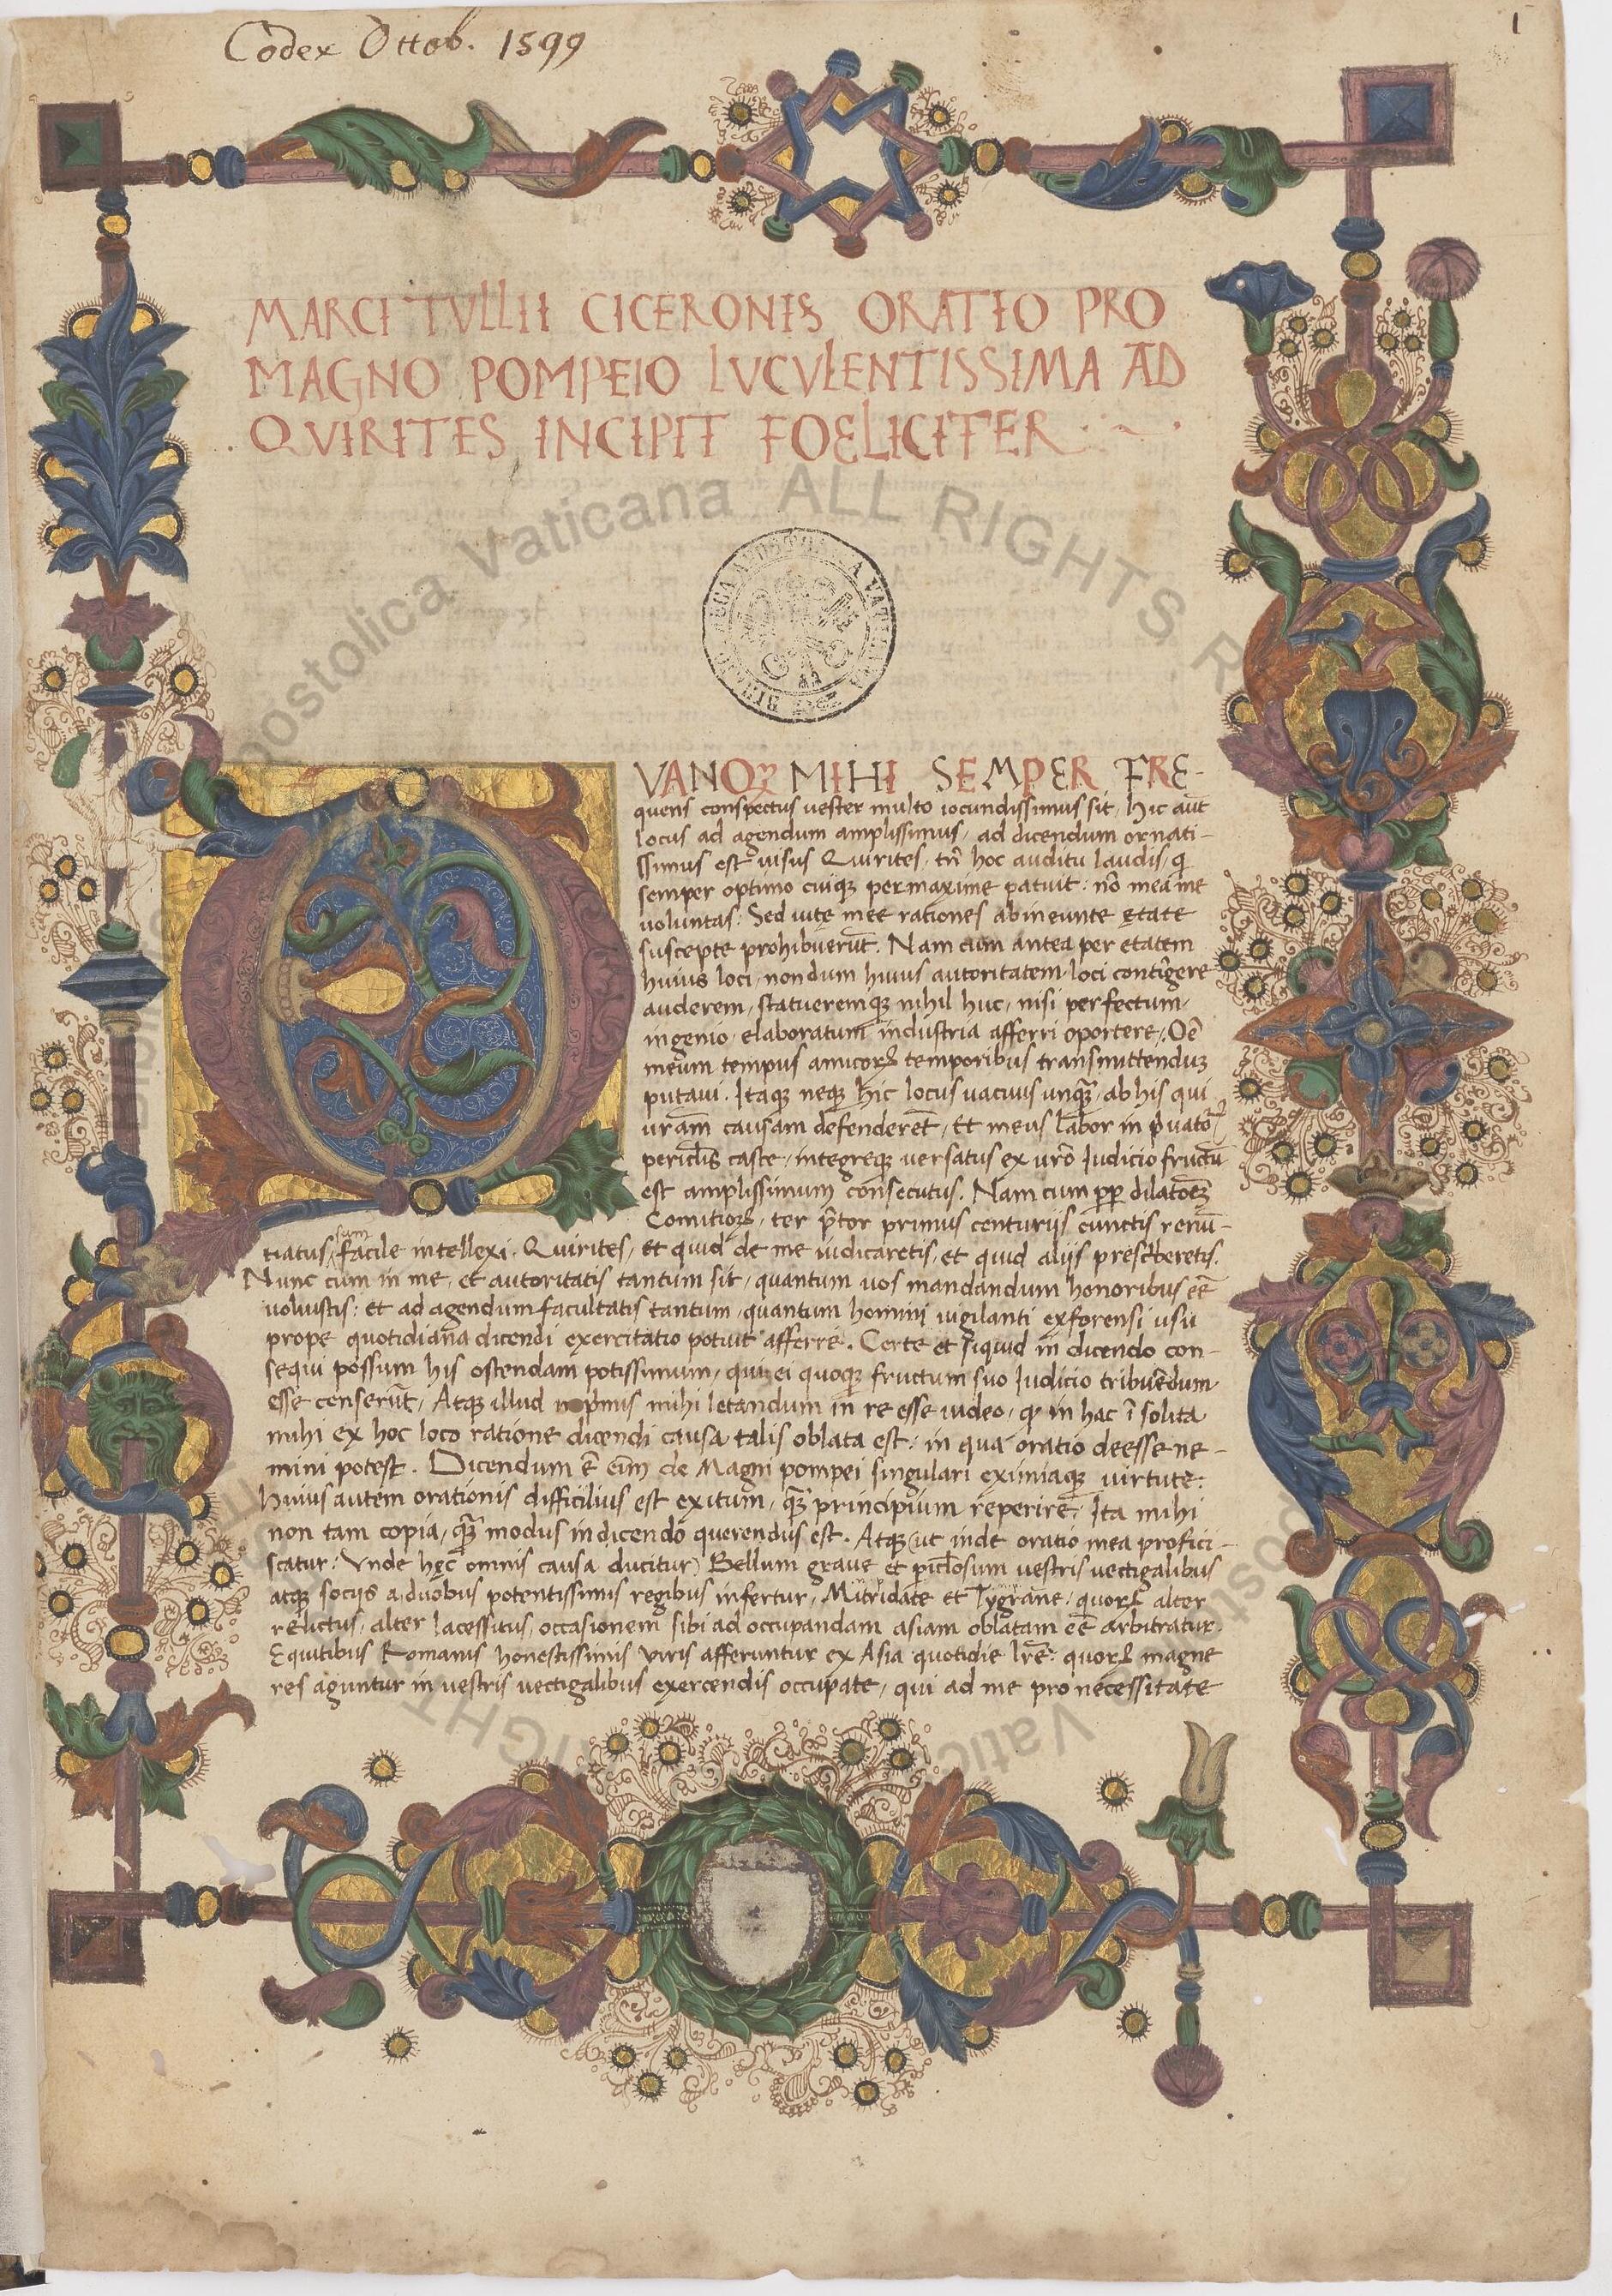 Codex Ottob. 1599
1
MARCI TVLLII CICERONIS ORATIO PRO
MAGNO POMPEIO LVCVLENTISSIMA AD
QVIRITES INCIPIT FOELICITER
VANQȝ MIHI SEMPER FRE-
quens conspectus uester multo iocundissimus sit, hic aut̄
locus ad agendum amplissimus, ad dicendum ornati-
ssimus est uisus Quirites, tn̄ hoc auditu laudis, q̄
semper optimo cuiqȝ permaxime patuit: nō mea me
uoluntas: Sed uitę meę rationes ab ineunte ętate
suscepte prohibuerūt. Nam cum antea per etatem
huius loci, nondum huius autoritatem loci contīgere
auderem, statueremqȝ nihil huc, nisi perfectum,
ingenio, elaboratum industria afferri oportere, Oē
meum tempus amicoꝝ temporibus transmittenduȝ
putaui. Itaqȝ neqȝ hic locus uacuus unqȝ̄, ab his qui
uram̄ causam defenderēt, Et meus labor in p̄uatoꝝ
periclis caste, integreqȝ uersatus ex urō Iudicio fructū
est amplissimum consecutus. Nam cum pp̄ dilatōeȝ
Comitioꝝ, ter p̄tor primus centurijs cunctis renū-
tiatus sum facile intellexi. Quirites, et quid de me iudicaretis, et quid alijs prescriberetis.
Nunc cum in me, et autoritatis tantum sit, quantum uos mandandum honoribus eē
uoluistis: et ad agendum facultatis tantum, quantum homini uigilanti ex forensi usu
prope quotidiana dicendi exercitatio potuit afferre. Certe et siquid in dicendo con-
sequi possum his ostendam potissimum, qui ei quoqȝ fructum suo Iudicio tribuēdum
esse censerūt, Atqȝ illud mihi letandum in re esse uideo, q̄ in hac ī solita
mihi ex hoc loco ratione dicendi causa talis oblata est: in qua oratio deesse ne-
mini potest. Dicendum ē eīm de Magni pompei singulari eximiaqȝ uirtute:
Huius autem orationis difficilius est exitum, qȝ̄ principium reperire, Ita mihi
non tam copia, qȝ̄ modus in dicendo querendus est. Atqȝ (ut inde oratio mea profici-
scatur: Vnde hęc omnis causa ducitur) Bellum graue et piclosum uestris uectigalibus
atqȝ socijs a duobus potentissimis regibus infertur, Mitridate et Tygrane, quoꝝ alter
relictus, alter lacessitus, occasionem sibi ad occupandam asiam oblatam eē arbitratur.
Equitibus Romanis honestissimis uiris afferuntur ex Asia quotidie lrē: quoꝝ magne
res aguntur in uestris uectigalibus exercendis occupate, qui ad me pro necessitate